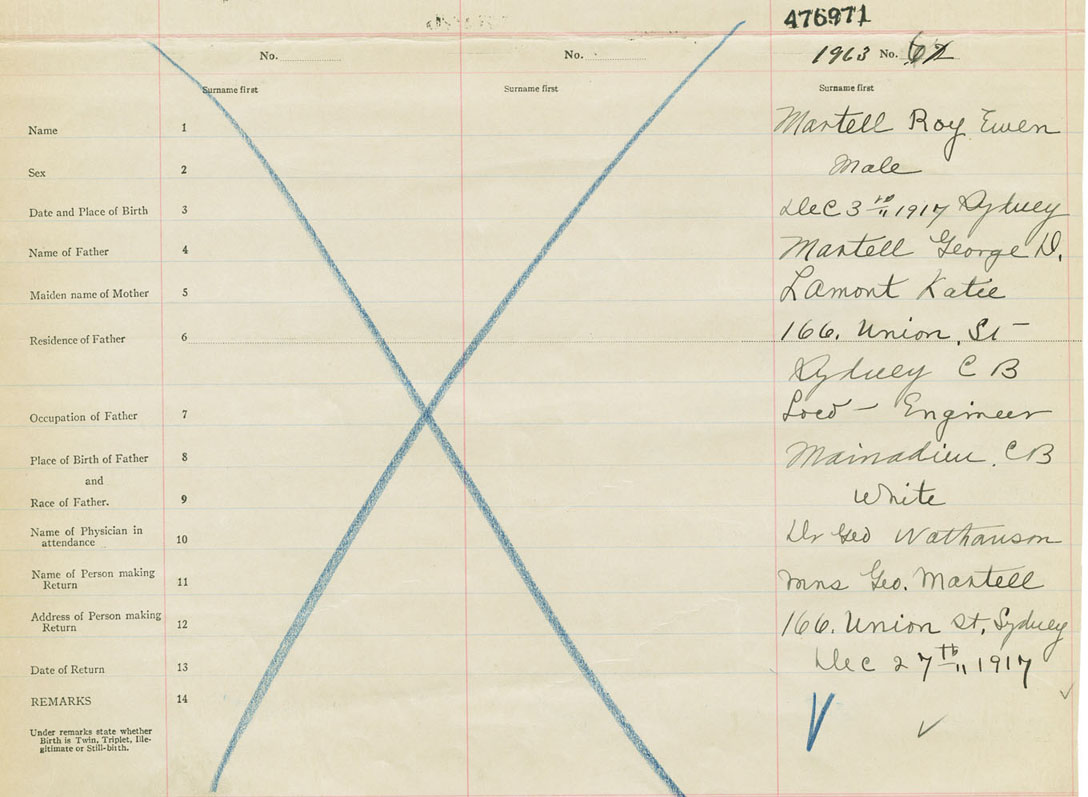 476971
No.
No.
1963 No. 62
Surname first
Surname first
Surname first
Name 1 Martell Roy Ewen
Sex 2 Male
Date and Place of Birth 3 Dec 3rd 1917 Sydney
Name of Father 4 Martell George D.
Maiden name of Mother 5 Lamont Katie
Residence of Father 6 166. Union. St
Sydney C B
Occupation of Father 7 Loco - Engineer
Place of Birth of Father 8 Mainadieu. CB
and
Race of Father. 9 White
Name of Physician in
attendance 10 Dr Geo Nathanson
Name of Person making
Return 11 Mrs Geo. Martell
Address of Person making
Return 12 166. Union St, Sydney
Date of Return 13 Dec 27th 1917
REMARKS 14
Under remarks state whether
Birth is Twin, Triplet, Ille-
gitimate or Still-birth.